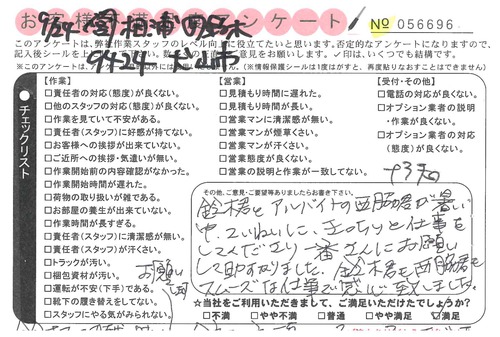 お客様アンケート
№ 056696
このアンケートは、弊社作業スタッフのレベル向上に役立てたいと思います。否定的なアンケートになりますので、
※このアンケートは、
(※情報保護シールは1度はがすと、再度貼りなおすことはできません)
チェックリスト
【作業】
□責任者の対応(態度)が良くない。
□他のスタッフの対応(態度)が良くない。
□作業を見ていて不安がある。
□責任者(スタッフ)に好感が持てない。
□お客様への挨拶が出来ていない。
□ご近所への挨拶・気遣いが無い。
□作業開始前の内容確認がなかった。
□作業開始時間が遅れた。
□荷物の取り扱いが雑である。
□お部屋の養生が出来ていない。
□作業時間が長すぎる。
□責任者(スタッフ)に清潔感が無い。
□責任者(スタッフ)が汗くさい。
□トラックが汚い。
□梱包資材が汚い。
□運転が不安(下手)である。
□靴下の履き替えをしてない。
□スタッフにやる気がみられない。
【営業】
□見積もり時間に遅れた。
□見積もり時間が長い。
□営業マンに清潔感が無い。
□営業マンが煙草くさい。
□営業マンが汗くさい。
□営業態度が良くない。
□営業の説明と作業が一致してない。
【受付・その他】
□電話の対応が良くない。
□オプション業者の説明
・作業が良くない。
□オプション業者の対応
(態度)が良くない。
その他、ご意見・ご要望等ありましたらお書き下さい。
鈴木君とアルバイトの西脇君が暑い
中ていねいに、きっちりと仕事を
してくださり一番さんにお願い
して助かりました。鈴木君も西脇君も
スムーズな仕事で感心致しました。
☆当社をご利用いただきまして、ご満足いただけたでしょうか?
□不満 □やや不満 □普通 □やや満足 ☑満足